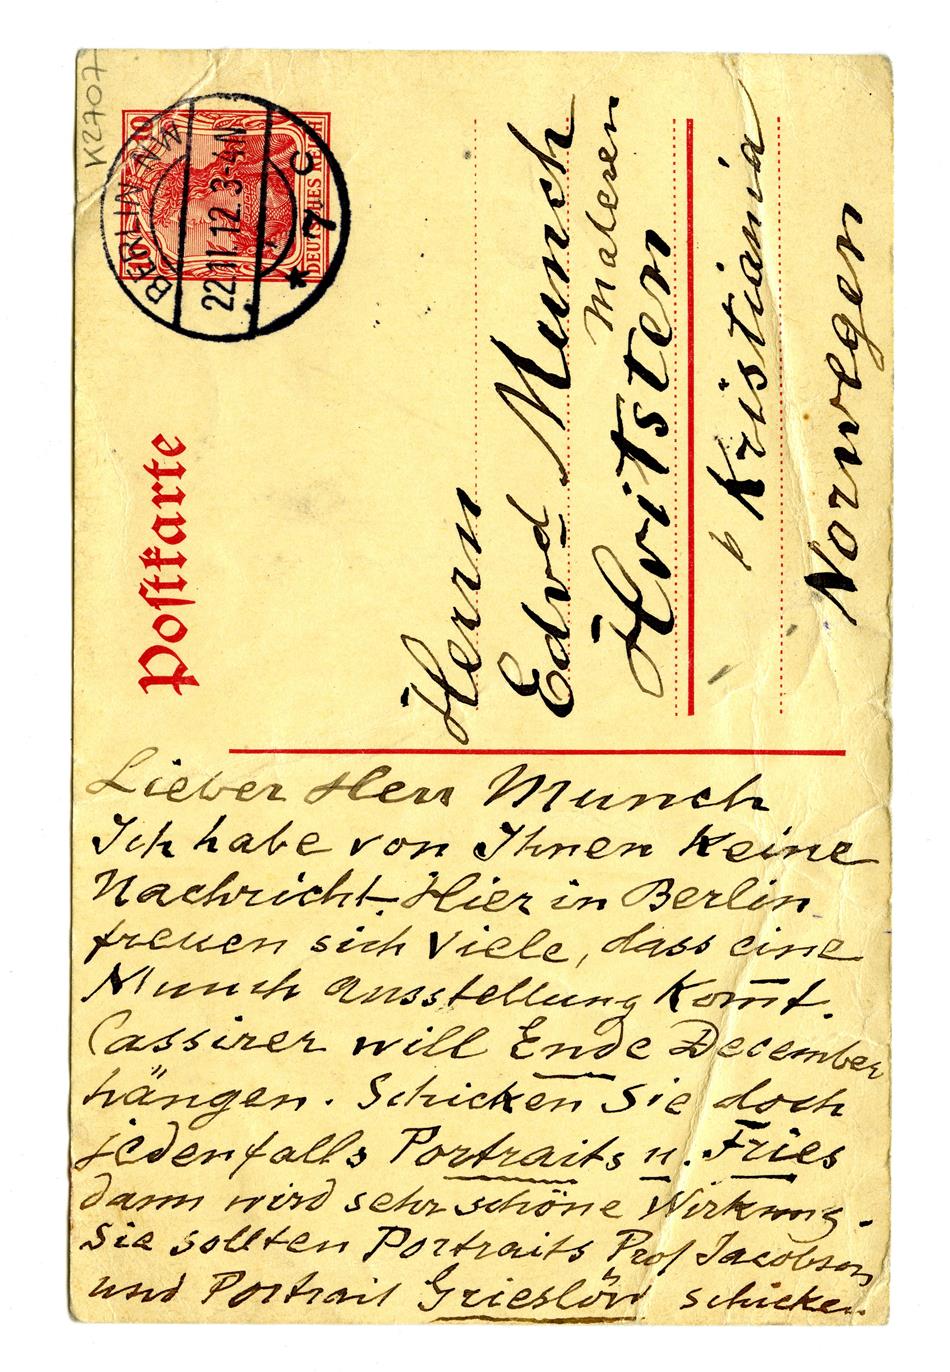 K2707
BERLIN NW
22.11.12.3-4N
* 7 c
10
DEUTSCHES REICH
Postkarte
Herrn
Edvd Munch
Maleren
Hvitsten
p Kristiania
Norwegen
Lieber Herr Munch
Ich habe von Ihnen Keine
Nachricht. Hier in Berlin
freuen sich Viele, dass eine
Munch Ausstellung Kom̅t.
Cassirer will Ende December
hängen. Schicken Sie doch
jedenfalls Portraits u. Fries
dann wird sehr schöne Wirkung.
Sie sollten Portraits Prof Jacobson
und Portrait schicken